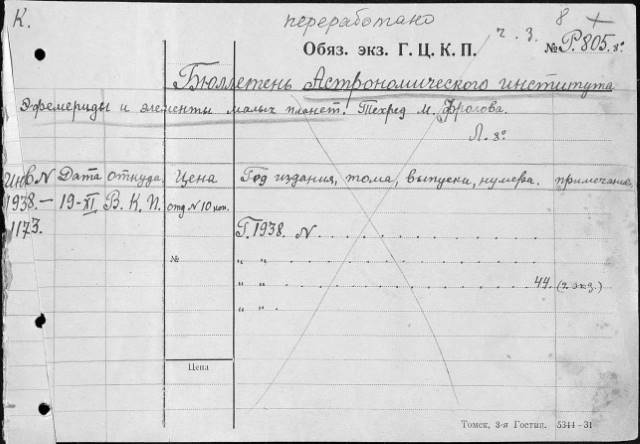 К. переработано 8 +
Обяз. экз. Г. Ц. К. П. ч. 3. № Р.805. 8°
Бюллетень Астрономического института
Эфемериды и элементы малых планет. Техред М. Фролова.
Л. 8°
Инв N Дата откуда Цена Год издания, тома, выпуски, нумера. примечание
1938.– 19-XI В. К. П. отд N 10 коп.
1173. Г. 1938. N . . . . . . . . . . .
№ „ „ . . . . . . . . . . .
„ „ . . . . . . . . . . . 44. (2 экз.)
„ „ . .
Цена
Томск, 3-я Гостип. 5344–31